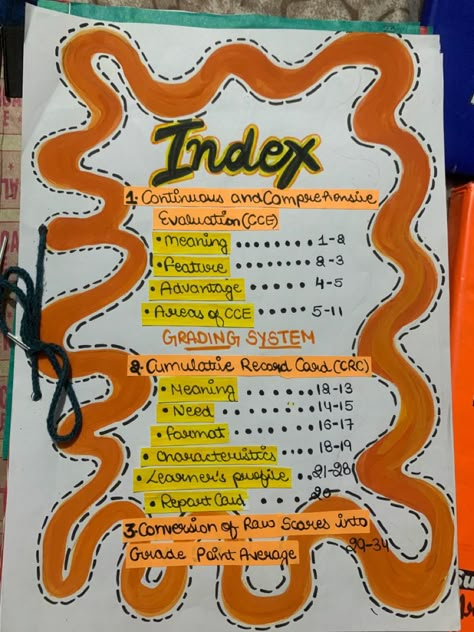 Index
1. Continuous and Comprehensive
Evaluation (CCE)
• Meaning ........ 1-2
• Feature ........ 2-3
• Advantage ...... 4-5
• Areas of CCE ...... 5-11
GRADING SYSTEM
2. Cumulative Record Card (CRC)
• Meaning ........ 12-13
• Need ........ 14-15
• Format ........ 16-17
• Characteristics .... 18-19
• Learner's profile .. 21-28
• Report Card .... 20
3. Conversion of Raw Scores into
Grade Point Average 29-34